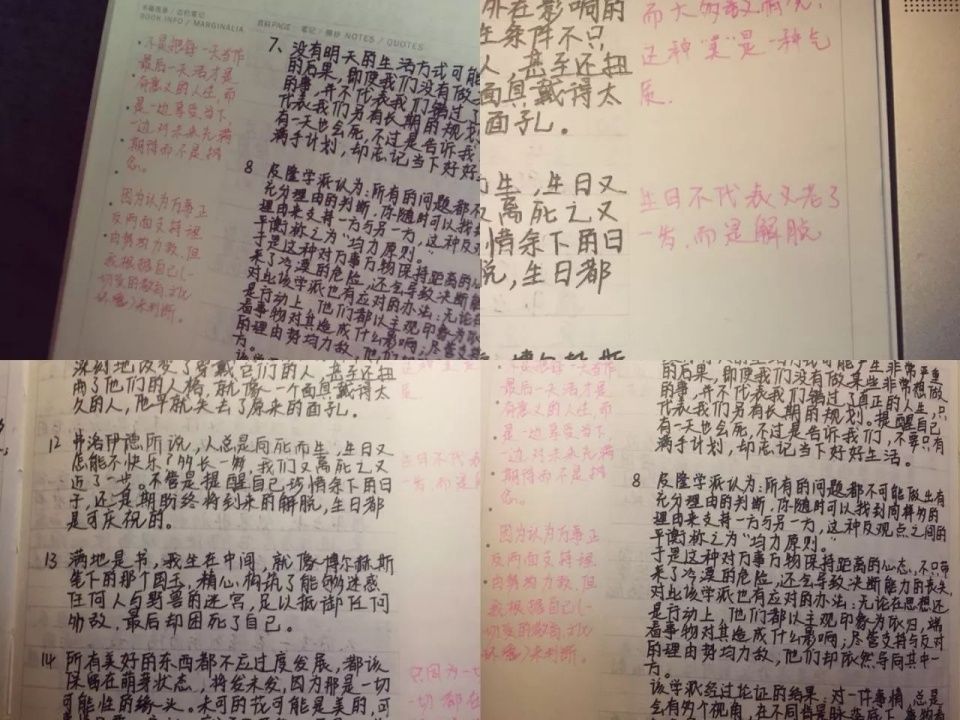 书籍信息 / 边栏笔记
BOOK.INFO / MARGINALIA
资料PAGE 笔记 / 摘抄 NOTES / QUOTES
不是把每一天当作
最后一天活才是
有意义的人生,而
是一边享受当下,
一边对未来充满
期待而不是挂
念。
因为认为万事正
反两面支持理
由势均力敌,但
7、没有明天的生活方式可能
的后果,即使我们没有做
的事,并不代表我们错过了
代表我们另有长期的规划
有一天也会死,不过是告诉我
满手计划,却忘记当下好好
8 皮隆学派认为:所有的问题都不
充分理由的判断,你随时可以找到
理由来支持一方与另一方,这种反
平衡称之为“均力原则”。
于是这种对万事万物保持距离的心
来了冷漠的危险,还会导致决断能
对此该学派也有应对的办法:无论
是行动上,他们都以主观印象为
看事物对其造成什么影响,尽管支
的理由势均力敌,他们
方。
外在影响的
生条件不只
人,甚至还扭
面具戴得太
面孔。
而生,生日又
离死之又
情条下的日
脱,生日都
这种“美”是一种气
质.
生日不代表又老了
一岁,而是解脱
深刻地改变了穿戴它们的人,甚至还扭
曲了他们的人格,就像一个面具戴得太
久的人,他早就失去了原来的面孔。
12 弗洛伊德所说,人总是向死而生,生日又
怎能不快乐?每长一岁,我们又离死之又
近了一步。不管是提醒自己该惰条下的日
子,还是期盼终将到来的解脱,生日都
是可庆祝的。
13 满地是书,我坐在中间,就像博尔赫斯
笔下的那个国王,精心构筑了能够迷惑
任何人与野兽的迷宫,足以抵御任何
劲敌,最后却困死了自己。
14 所有美好的东西都不应过度发展,都该
保留在萌芽状态,将发未发,因为那是一切
可能性的源头。未可的我可能是美的,可
只因为一切
一切都在
不是把每一天当作
最后一天活才是
有意义的人生,而
是一边享受当下,
一边对未来充满
期待而不是挂
念。
因为认为万事正
反两面支持理
由势均力敌,但
我根据自己(一
切受的教育、文化
环境)来判断。
的后果,即使我们没有做某些非常想做
的事,并不代表我们错过了真正的人生,只
代表我们另有长期的规划。提醒自己
有一天也会死,不过是告诉我们,不要只有
满手计划,却忘记当下好好生活。
8 皮隆学派认为:所有的问题都不可能做出有
充分理由的判断,你随时可以找到同样够的
理由来支持一方与另一方,这种反观点之间的
平衡称之为“均力原则”。
于是这种对万事万物保持距离的心态,不只带
来了冷漠的危险,还会导致决断能力的丧失,
对此该学派也有应对的办法:无论在思想还
是行动上,他们都以主观印象为依归,端
看事物对其造成什么影响,尽管支持与反对
的理由势均力敌,他们却依然导向其中一
方。
该学派经过论证的结果:对一件事情,总是